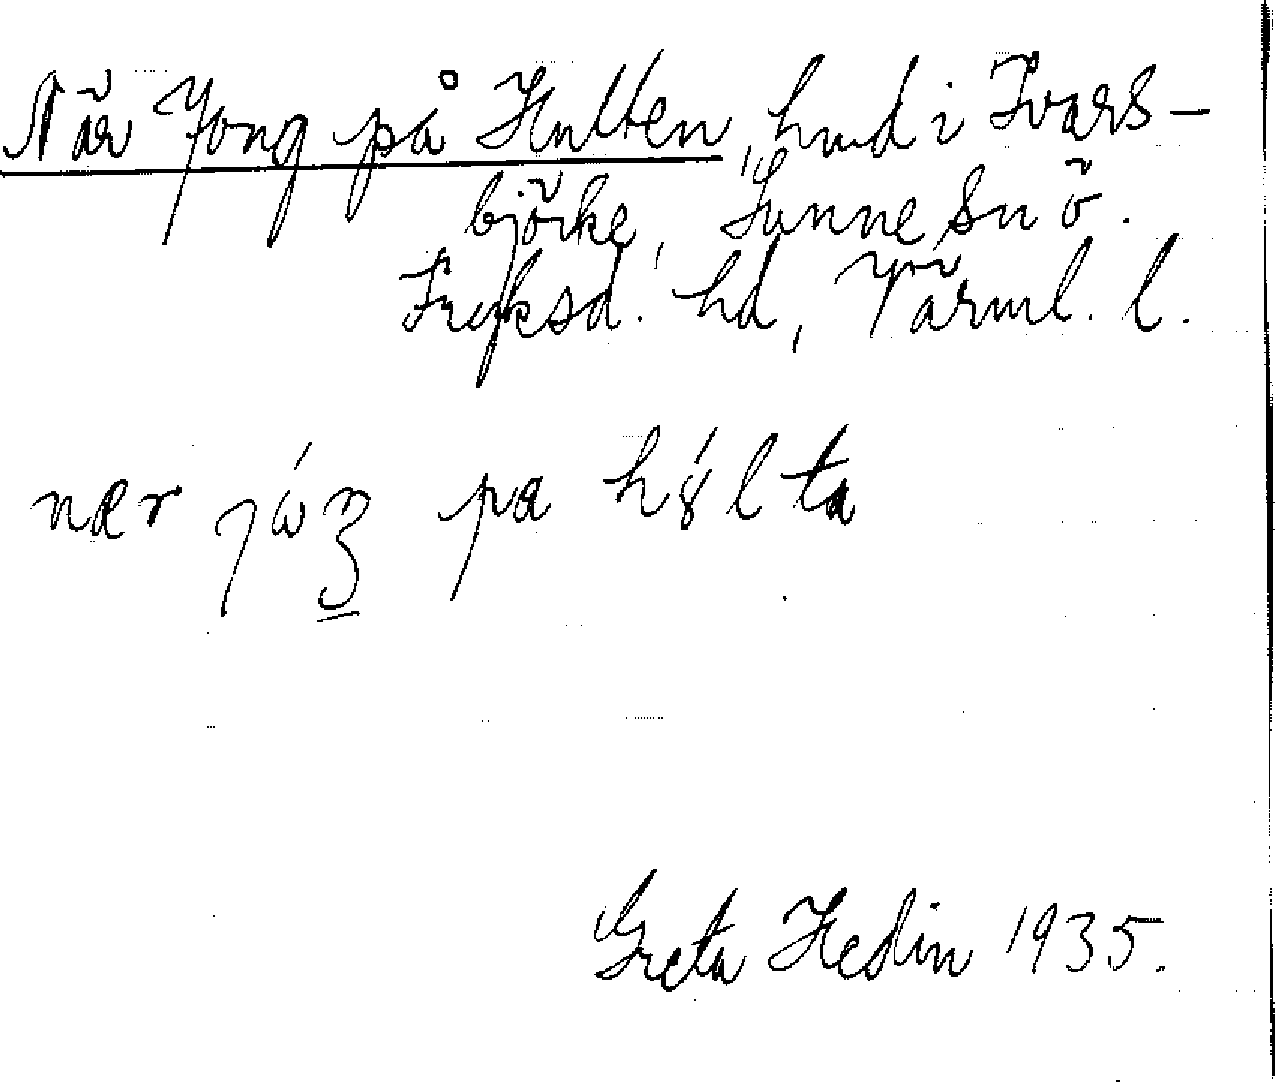 När Jong på Hulten, hmd i Ivars-
björke, Sunne sn ö.
Fryksd. hd, Värml. l.
nær pa
Greta Hedin 1935.